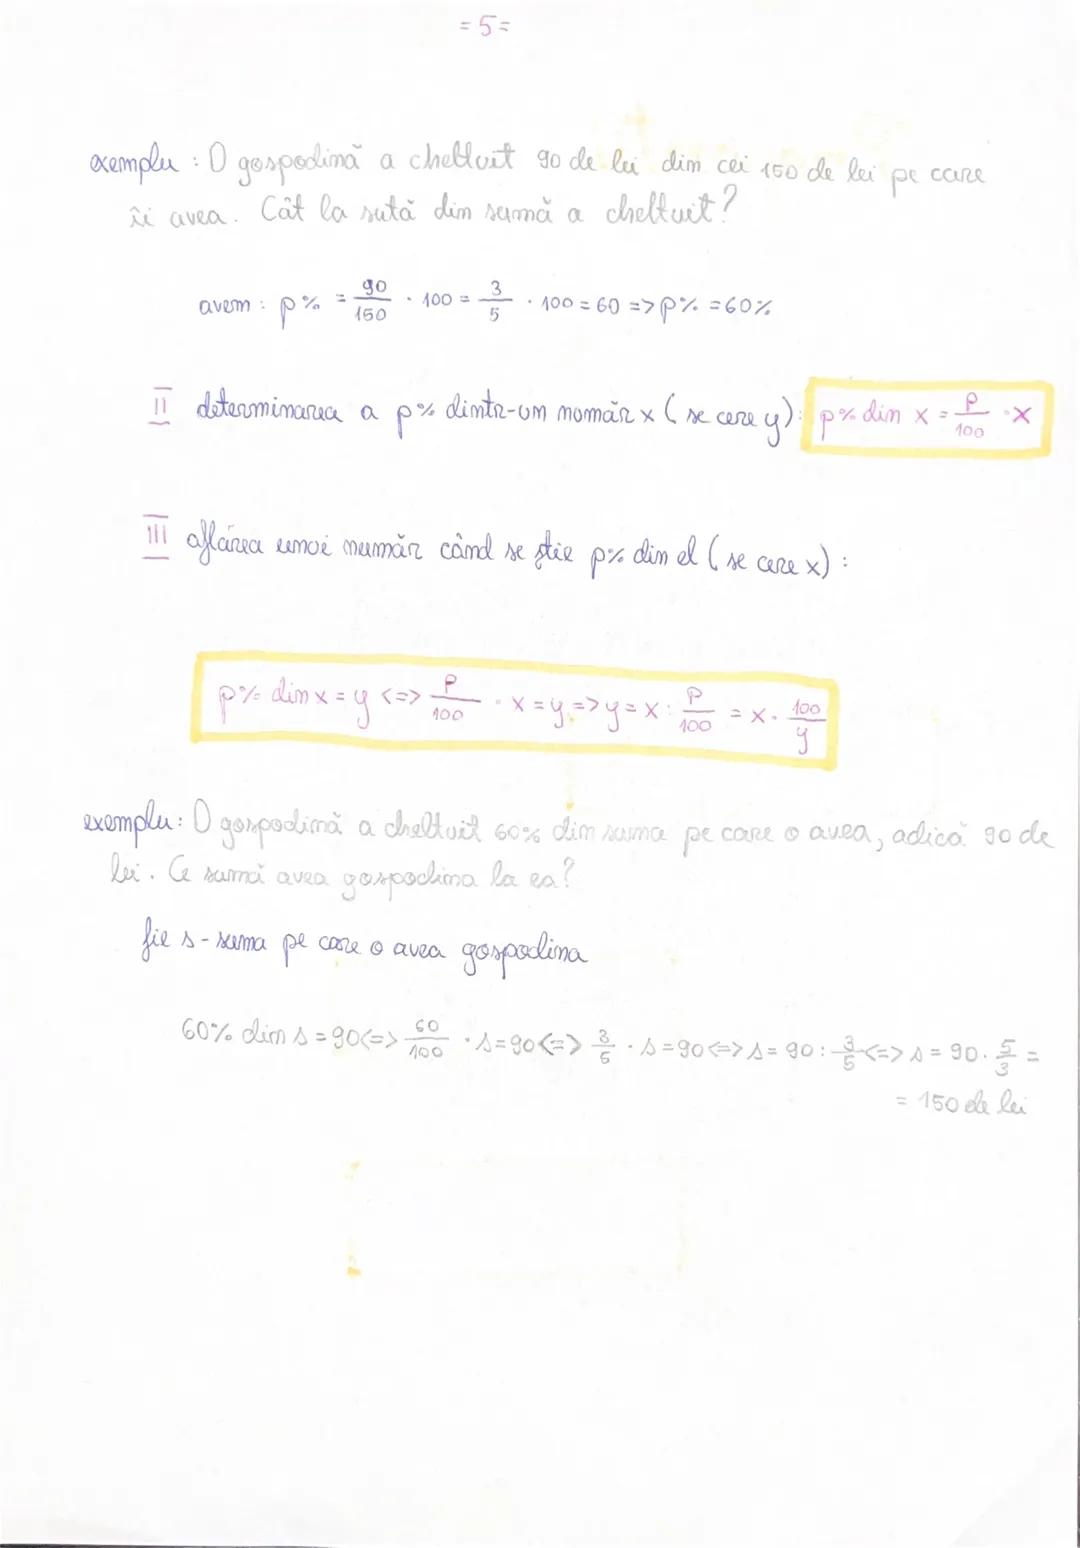 = 5 =
exemplu : O gospodină a cheltuit 90 de lei din cei 150 de lei pe care
îi avea. Cât la sută din sumă a cheltuit?
avem : p% = 90/150 · 100 = 3/5 · 100 = 60 => p% = 60%
II determinarea a p% dintr-un număr x ( se cere y): p% din x = p/100 · x
III aflarea unui număr când se știe p% din el ( se cere x) :
p% din x = y <=> p/100 · x = y => y = x : p/100 = x · 100/y
exemplu: O gospodină a cheltuit 60% din suma pe care o avea, adică 90 de
lei. Ce sumă avea gospodina la ea?
fie s - suma pe care o avea gospodina
60% din s = 90 <=> 60/100 · s = 90 <=> 3/5 · s = 90 <=> s = 90 : 3/5 <=> s = 90 · 5/3 =
= 150 de lei